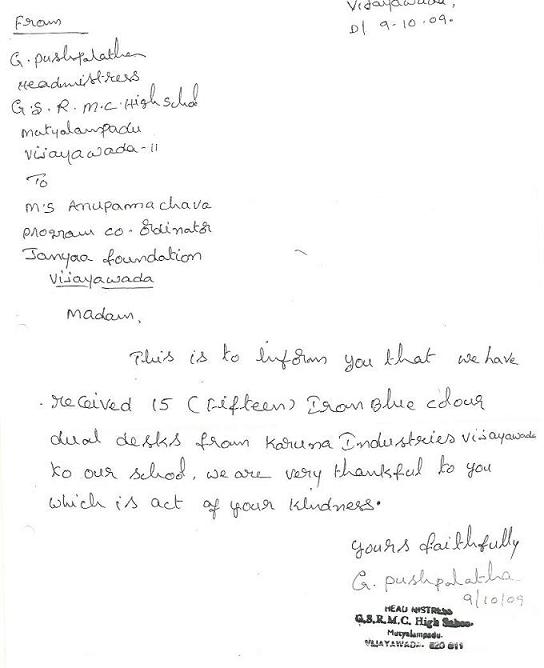 Vijayawada,
D/ 9-10-09.
From
G. pushpalatha
Headmistress
G.S.R.M.C. High School
Mutyalampadu
Vijayawada-11
To
M/S Anupama chava
program co-ordinator
Janyaa foundation
Vijayawada
Madam,
This is to Inform you that we have
received 15 (Fifteen) Iron Blue colour
dual desks from Karuna Industries Vijayawada
to our school. we are very thankful to you
which is act of your kindness.
yours faithfully
G. pushpalatha
9/10/09
HEAD MISTRESS
G.S.R.M.C. High School
Mutyalampadu
VIJAYAWADA- 520 011